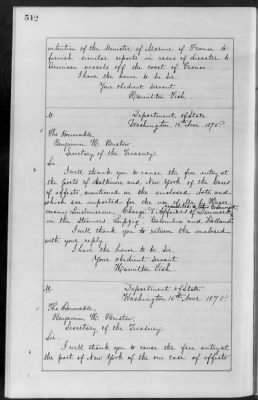 512
intention of the Minister of Marine of France to
furnish similar reports in cases of disaster to
American vessels off the coast of France
I have the honor to be Sir
Your obedient servant
Hamilton Fish
Department of State
Washington, 16th Nov. 1875
The Honorable
Benjamin H. Bristow,
Secretary of the Treasury
Sir
I will thank you to cause the free entry at
the ports of Baltimore and New York of the cases
of effects mentioned in the enclosed note and
which are imported for the use of
Chargé d'Affaires of Denmark
in the steamers Leipzig, Columbia and
I will thank you to return the enclosed
with your reply.
I have the honor to be Sir,
Your obedient servant
Hamilton Fish.
Department of State
Washington 16th Nov. 1875
The Honorable
Benjamin H. Bristow,
Secretary of the Treasury
Sir.
I will thank you to cause the free entry at
the port of New York of the one case of effects